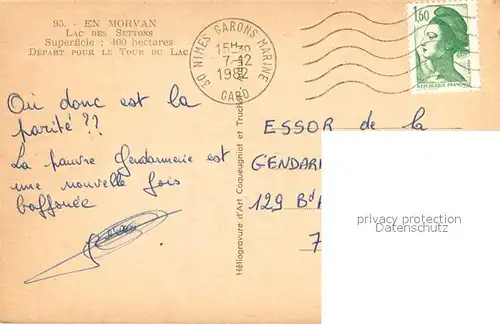 95. - EN MORVAN
LAC DES SETTONS
Superficie : 400 hectares
DÉPART POUR LE TOUR DU LAC
30 NIMES GARONS MARINE
15H30
7-12
1982
GARD
1,60
REPUBLIQUE FRANÇAISE
Où donc est la
parité ??
La pauvre Gendarmerie est
une nouvelle fois
baffouée
Héliogravure d'Art Coqueugniot et Truchot
ESSOR de la
GENDAR
129 Bd
7
privacy protection
Datenschutz